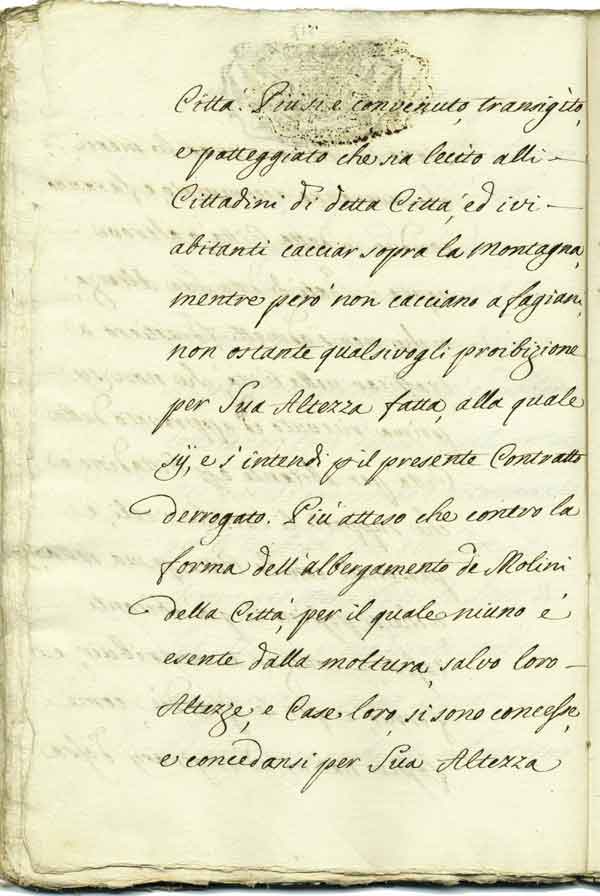 Città. Più si è convenuto, transigito,
e patteggiato che sia lecito alli
Cittadini di detta Città, ed ivi
abitanti cacciar sopra la Montagna,
mentre però non cacciano a fagian,
non ostante qualsivogli proibizione
per Sua Altezza fatta, alla quale
sij, e s'intendi p il presente Contratto
derrogato. Più atteso che contro la
forma dell'albergamento de Molini
della Città, per il quale niuno è
esente dalla moltura, salvo loro
Altezze, e Case loro, si sono concesse,
e concedansi per Sua Altezza